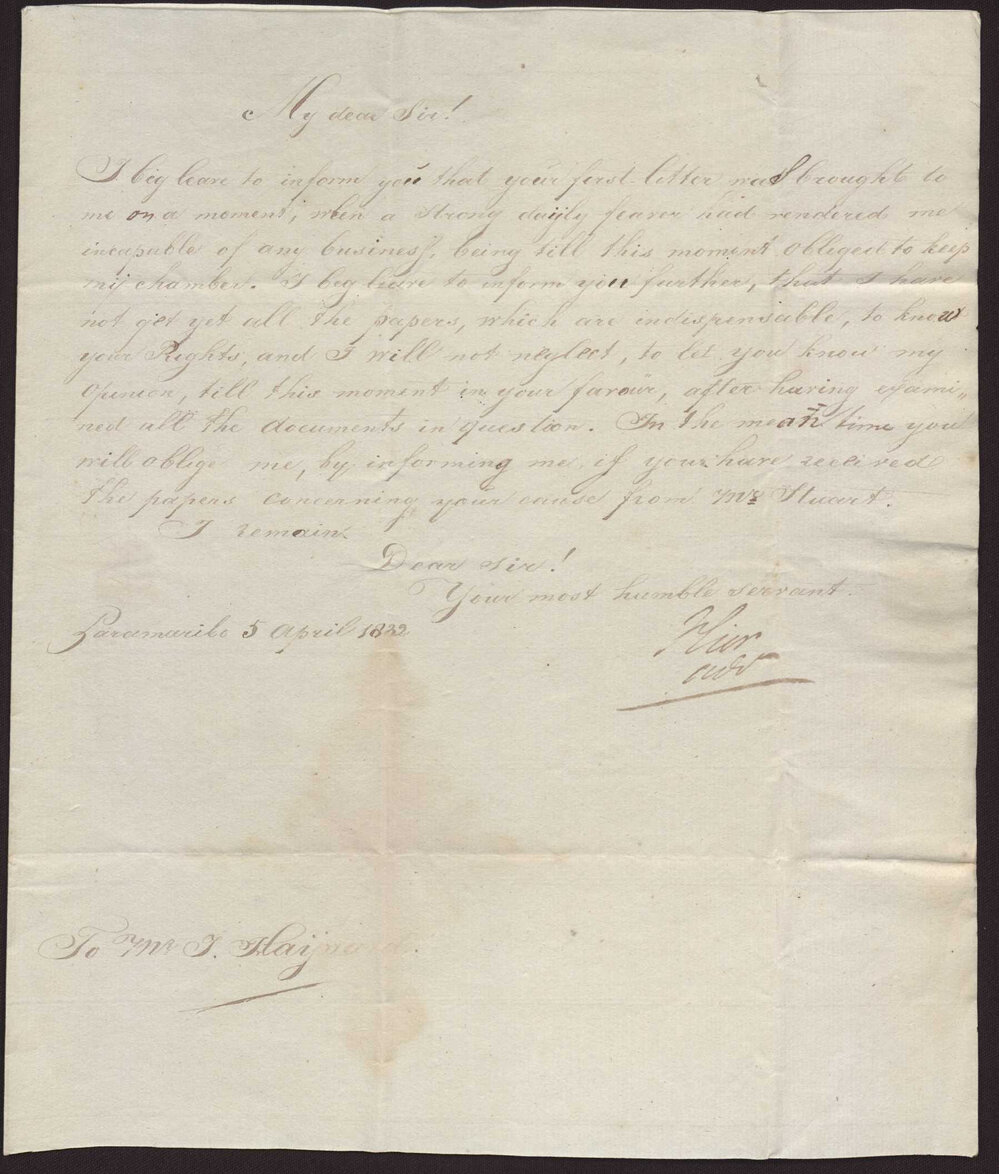 My dear Sir!
I beg leave to inform you that your first letter was brought to
me on a moment, when a strong daijly feaver had rendered me
incapable of any business, being till this moment obliged to keep
my chamber. I beg leave to inform you further, that I have
not get yet all the papers, which are indispensable, to know
your Rights, and I will not neglect, to let you know my
opinion, till this moment in your favour, after having exami„
ned all the documents in question. In the mean time you
will oblige me, by informing me, if your have received
the papers concerning your cause from Mr Stuart.
I remain
Dear Sir!
Your most humble servant.
Paramaribo 5 April 1832
adv
To Mr J.